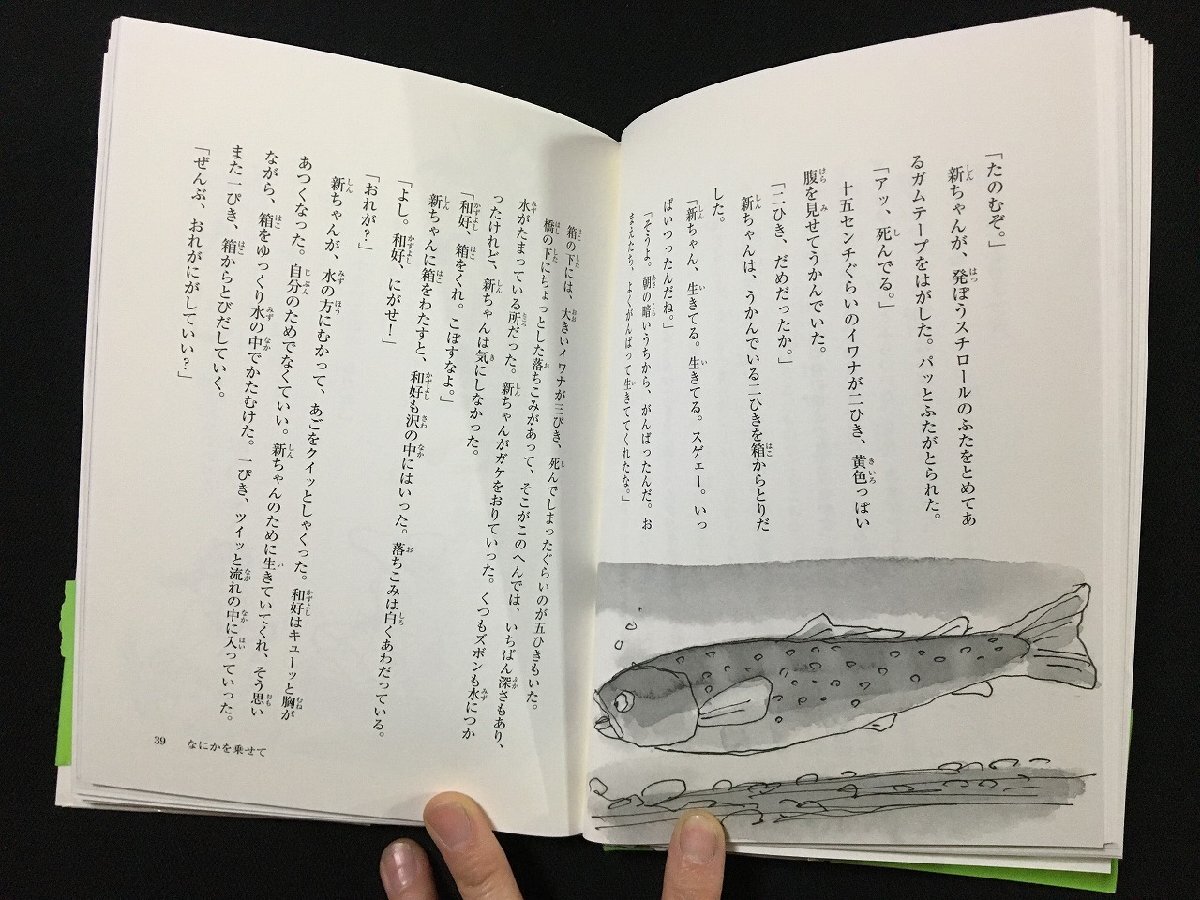 「たのむぞ。」
新ちゃんが、発ぽうスチロールのふたをとめてあ
るガムテープをはがした。パッとふたがとられた。
「アッ、死んでる。」
十五センチぐらいのイワナが二ひき、黄色っぽい
腹を見せてうかんでいた。
「二ひき、だめだったか。」
新ちゃんは、うかんでいる二ひきを箱からとりだ
した。
「新ちゃん、生きてる。生きてる。スゲェー。いっ
ぱいつったんだね。」
「そうよ。朝の暗いうちから、がんばったんだ。お
まえたち、よくがんばって生きててくれたな。」
箱の下には、大きいイワナが三びき、死んでしまったぐらいのが五ひきもいた。
橋の下にちょっとした落ちこみがあって、そこがこのへんでは、いちばん深さもあり、
水がたまっている所だった。新ちゃんがガケをおりていった。くつもズボンも水につか
ったけれど、新ちゃんは気にしなかった。
「和好、箱をくれ。こぼすなよ。」
新ちゃんに箱をわたすと、和好も沢の中にはいった。落ちこみは白くあわだっている。
「よし。和好、にがせ！」
「おれが？」
新ちゃんが、水の方にむかって、あごをクイッとしゃくった。和好はキューッと胸が
あつくなった。自分のためでなくていい。新ちゃんのために生きていてくれ、そう思い
ながら、箱をゆっくり水の中でかたむけた。一ぴき、ツイッと流れの中に入っていった。
また一ぴき、箱からとびだしていく。
「ぜんぶ、おれがにがしていい？」
39 なにかを乗せて